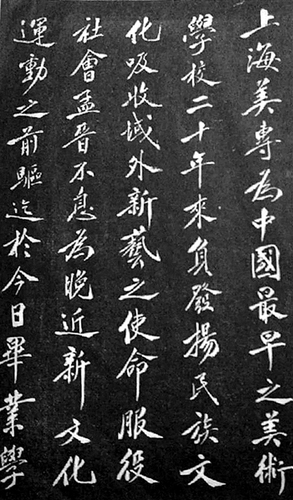 上海美專為中國最早之美術
學校二十年來負發揚民族文
化吸收域外新藝之使命服役
社會孟晉不息為晚近新文化
運動之前驅迄於今日畢業學